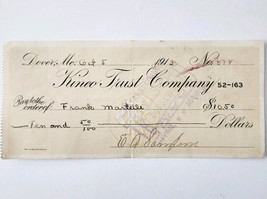 Dover, Me. Oct 8 1913 No.
Kineo Trust Company 52-163
Pay to the
order of Frank Martell $10.50
Ten and 50/100 Dollars